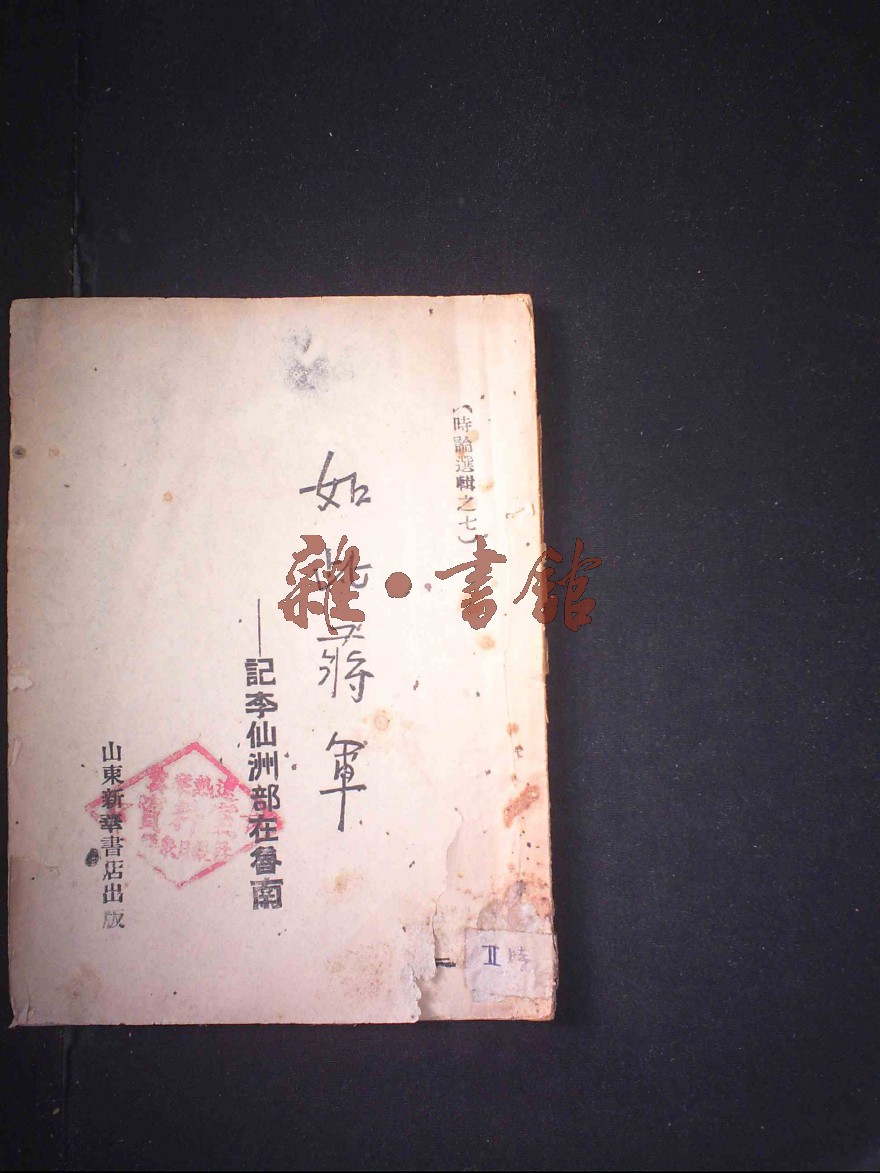 （時論選輯之七）
如此蔣軍
——記李仙洲部在魯南
山東新華書店出版
雜·書館
II 時